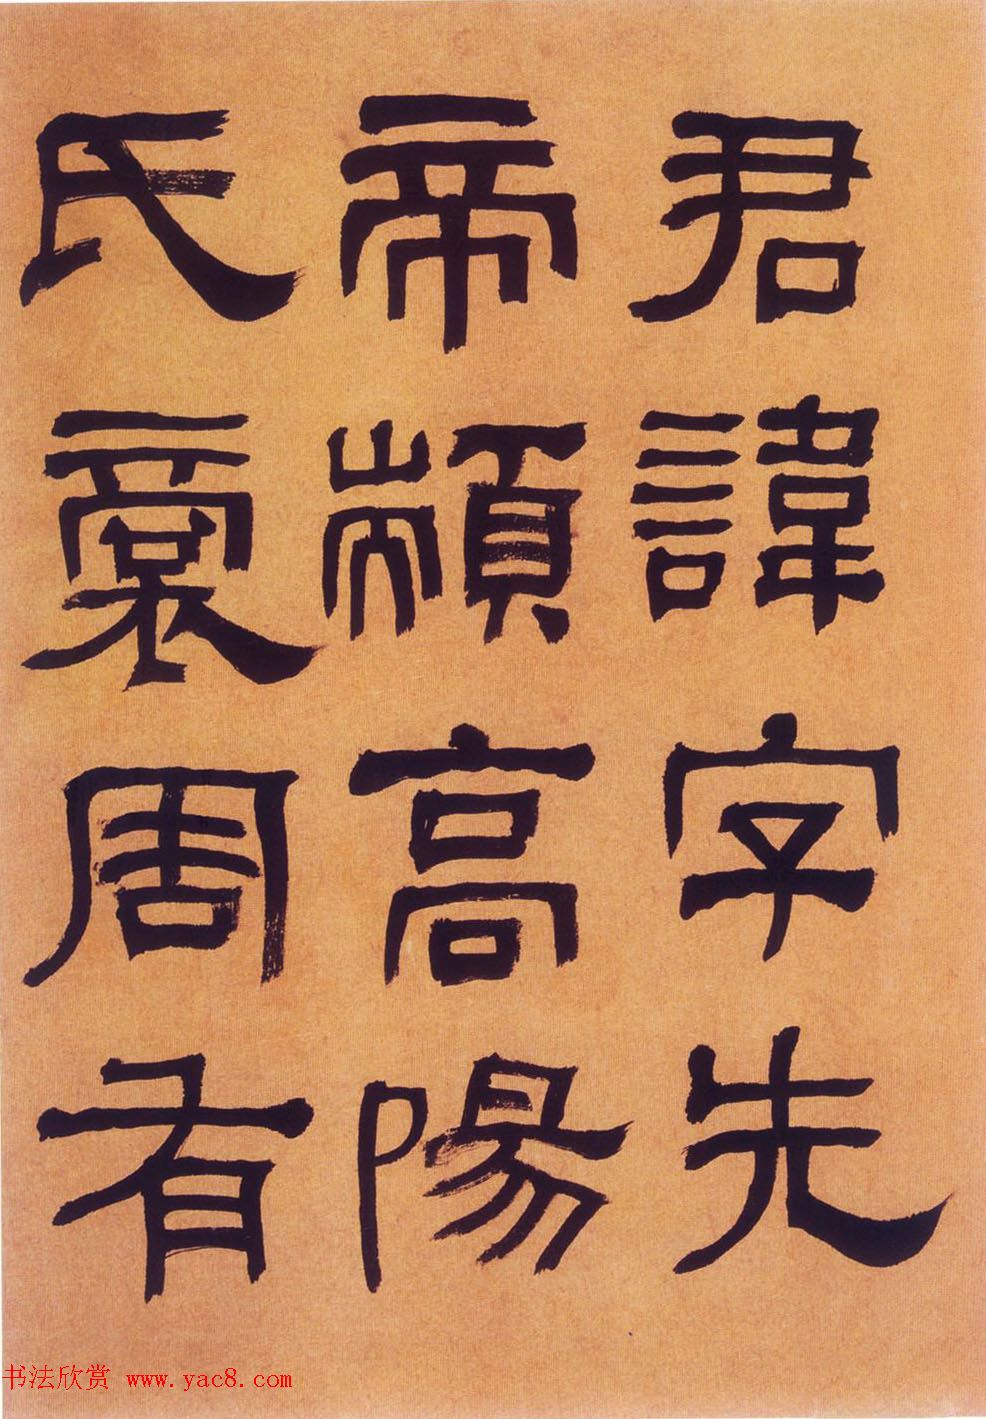 君諱字先
帝顓高陽
氏裔周有
书法欣赏 www.yac8.com